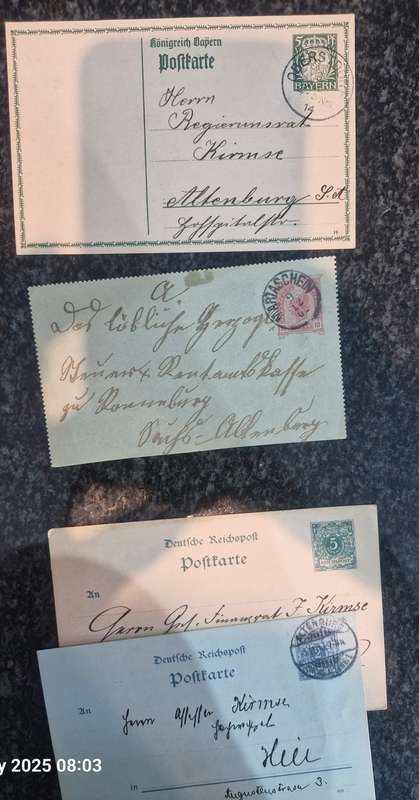 Königreich Bayern
Postkarte
5
BAYERN
Herrn
Regierungsrat
Kirmse
Altenburg S.A.
Hofspitalstr.
MARIASCHEIN
10
Das löbliche Herzogl.
Steuer & Rentamtskasse
zu Ronneburg
Sachs-Altenburg
Deutsche Reichspost
Postkarte
5
An
Herrn Geh. Finanzrat F. Kirmse
Deutsche Reichspost
Postkarte
ALTENBURG
An
Herrn Assessor Kirmse
Hier
in
Augustenstrasse 3.
2025 08:03